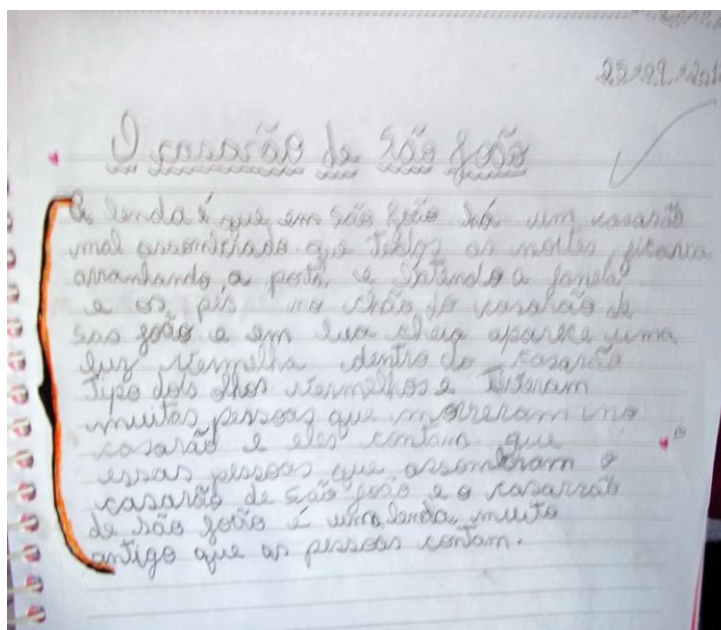 O casarão de São João
A lenda é que em são joão há um casarão
mal assombrado que todas as noites ficava
arranhando a porta e batendo a janela
e os pés no chão do casarão de
sao joão e em lua cheia aparece uma
luz vermelha dentro do casarão
tipo dois olhos vermelhos e tiveram
muitas pessoas que morreram no
casarão e eles contam que
essas pessoas que assombram o
casarão de são joão e o casarsão
de são joão é uma lenda muito
antigo que as pessoas contam.